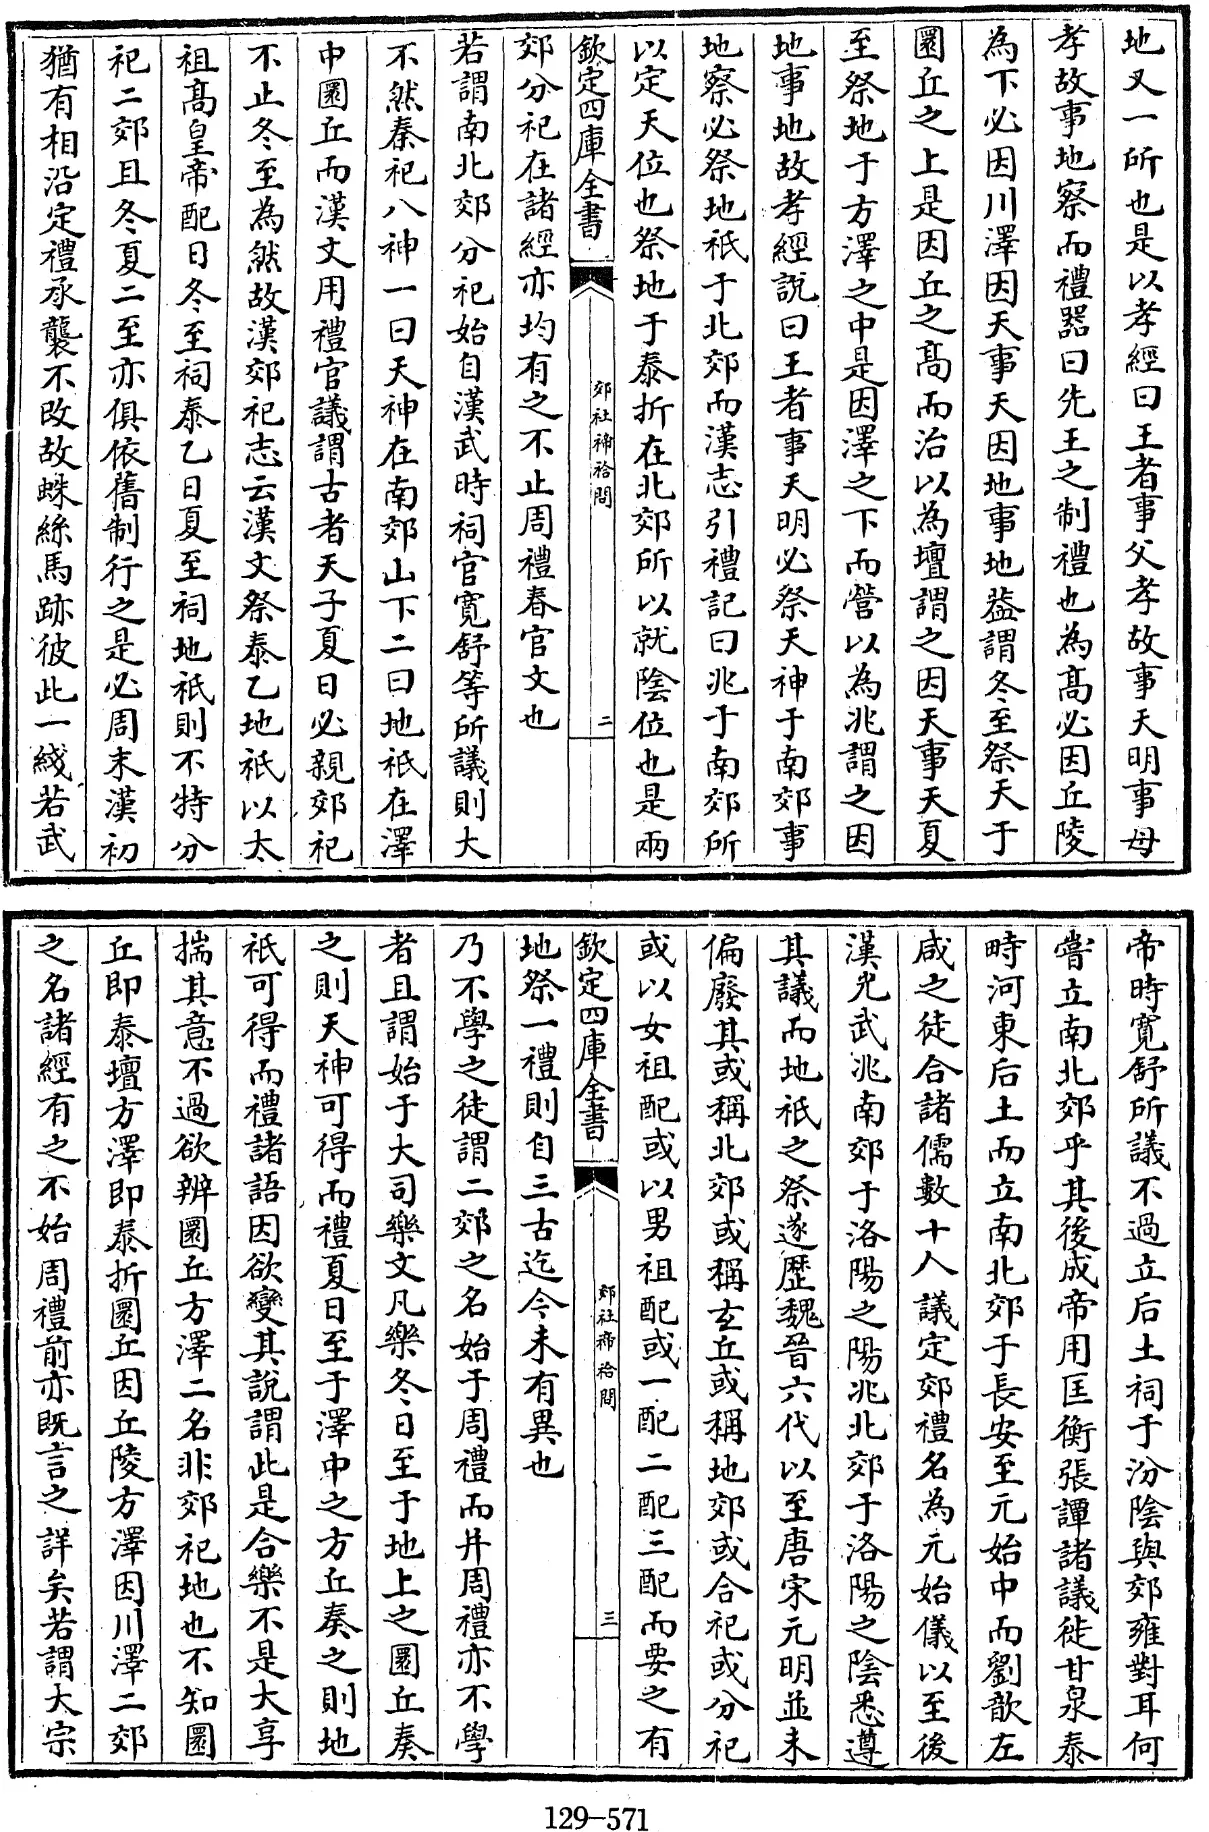 地又一所也是以孝經曰王者事父孝故事天明事母
孝故事地察而禮器曰先王之制禮也為髙必因丘陵
為下必因川澤因天事天因地事地葢謂冬至祭天于
圜丘之上是因丘之髙而治以為壇謂之因天事天夏
至祭地于方澤之中是因澤之下而營以為兆謂之因
地事地故孝經說曰王者事天明必祭天神于南郊事
地察必祭地祇于北郊而漢志引禮記曰兆于南郊所
以定天位也祭地于泰折在北郊所以就陰位也是兩
欽定四庫全書
郊社禘祫問
二
郊分祀在諸經亦均有之不止周禮春官文也
若謂南北郊分祀始自漢武時祠官寛舒等所議則大
不然秦祀八神一曰天神在南郊山下二曰地祇在澤
中圜丘而漢文用禮官議謂古者天子夏日必親郊祀
不止冬至為然故漢郊祀志云漢文祭泰乙地祇以太
祖髙皇帝配日冬至祠泰乙日夏至祠地祇則不特分
祀二郊且冬夏二至亦俱依舊制行之是必周末漢初
猶有相沿定禮承襲不改故蛛絲馬跡彼此一綫若武
帝時寛舒所議不過立后土祠于汾陰與郊雍對耳何
嘗立南北郊乎其後成帝用匡衡張譚諸議徙甘泉泰
畤河東后土而立南北郊于長安至元始中而劉歆左
咸之徒合諸儒數十人議定郊禮名為元始儀以至後
漢光武兆南郊于洛陽之陽兆北郊于洛陽之陰悉遵
其議而地祇之祭遂歴魏晉六代以至唐宋元明並未
偏廢其或稱北郊或稱玄丘或稱地郊或合祀或分祀
或以女祖配或以男祖配或一配二配三配而要之有
欽定四庫全書
郊社禘祫問
三
地祭一禮則自三古迄今未有異也
乃不學之徒謂二郊之名始于周禮而并周禮亦不學
者且謂始于大司樂文凡樂冬日至于地上之圜丘奏
之則天神可得而禮夏日至于澤中之方丘奏之則地
祇可得而禮諸語因欲變其說謂此是合樂不是大享
揣其意不過欲辨圜丘方澤二名非郊祀地也不知圜
丘即泰壇方澤即泰折圜丘因丘陵方澤因川澤二郊
之名諸經有之不始周禮前亦既言之詳矣若謂大宗
129-571